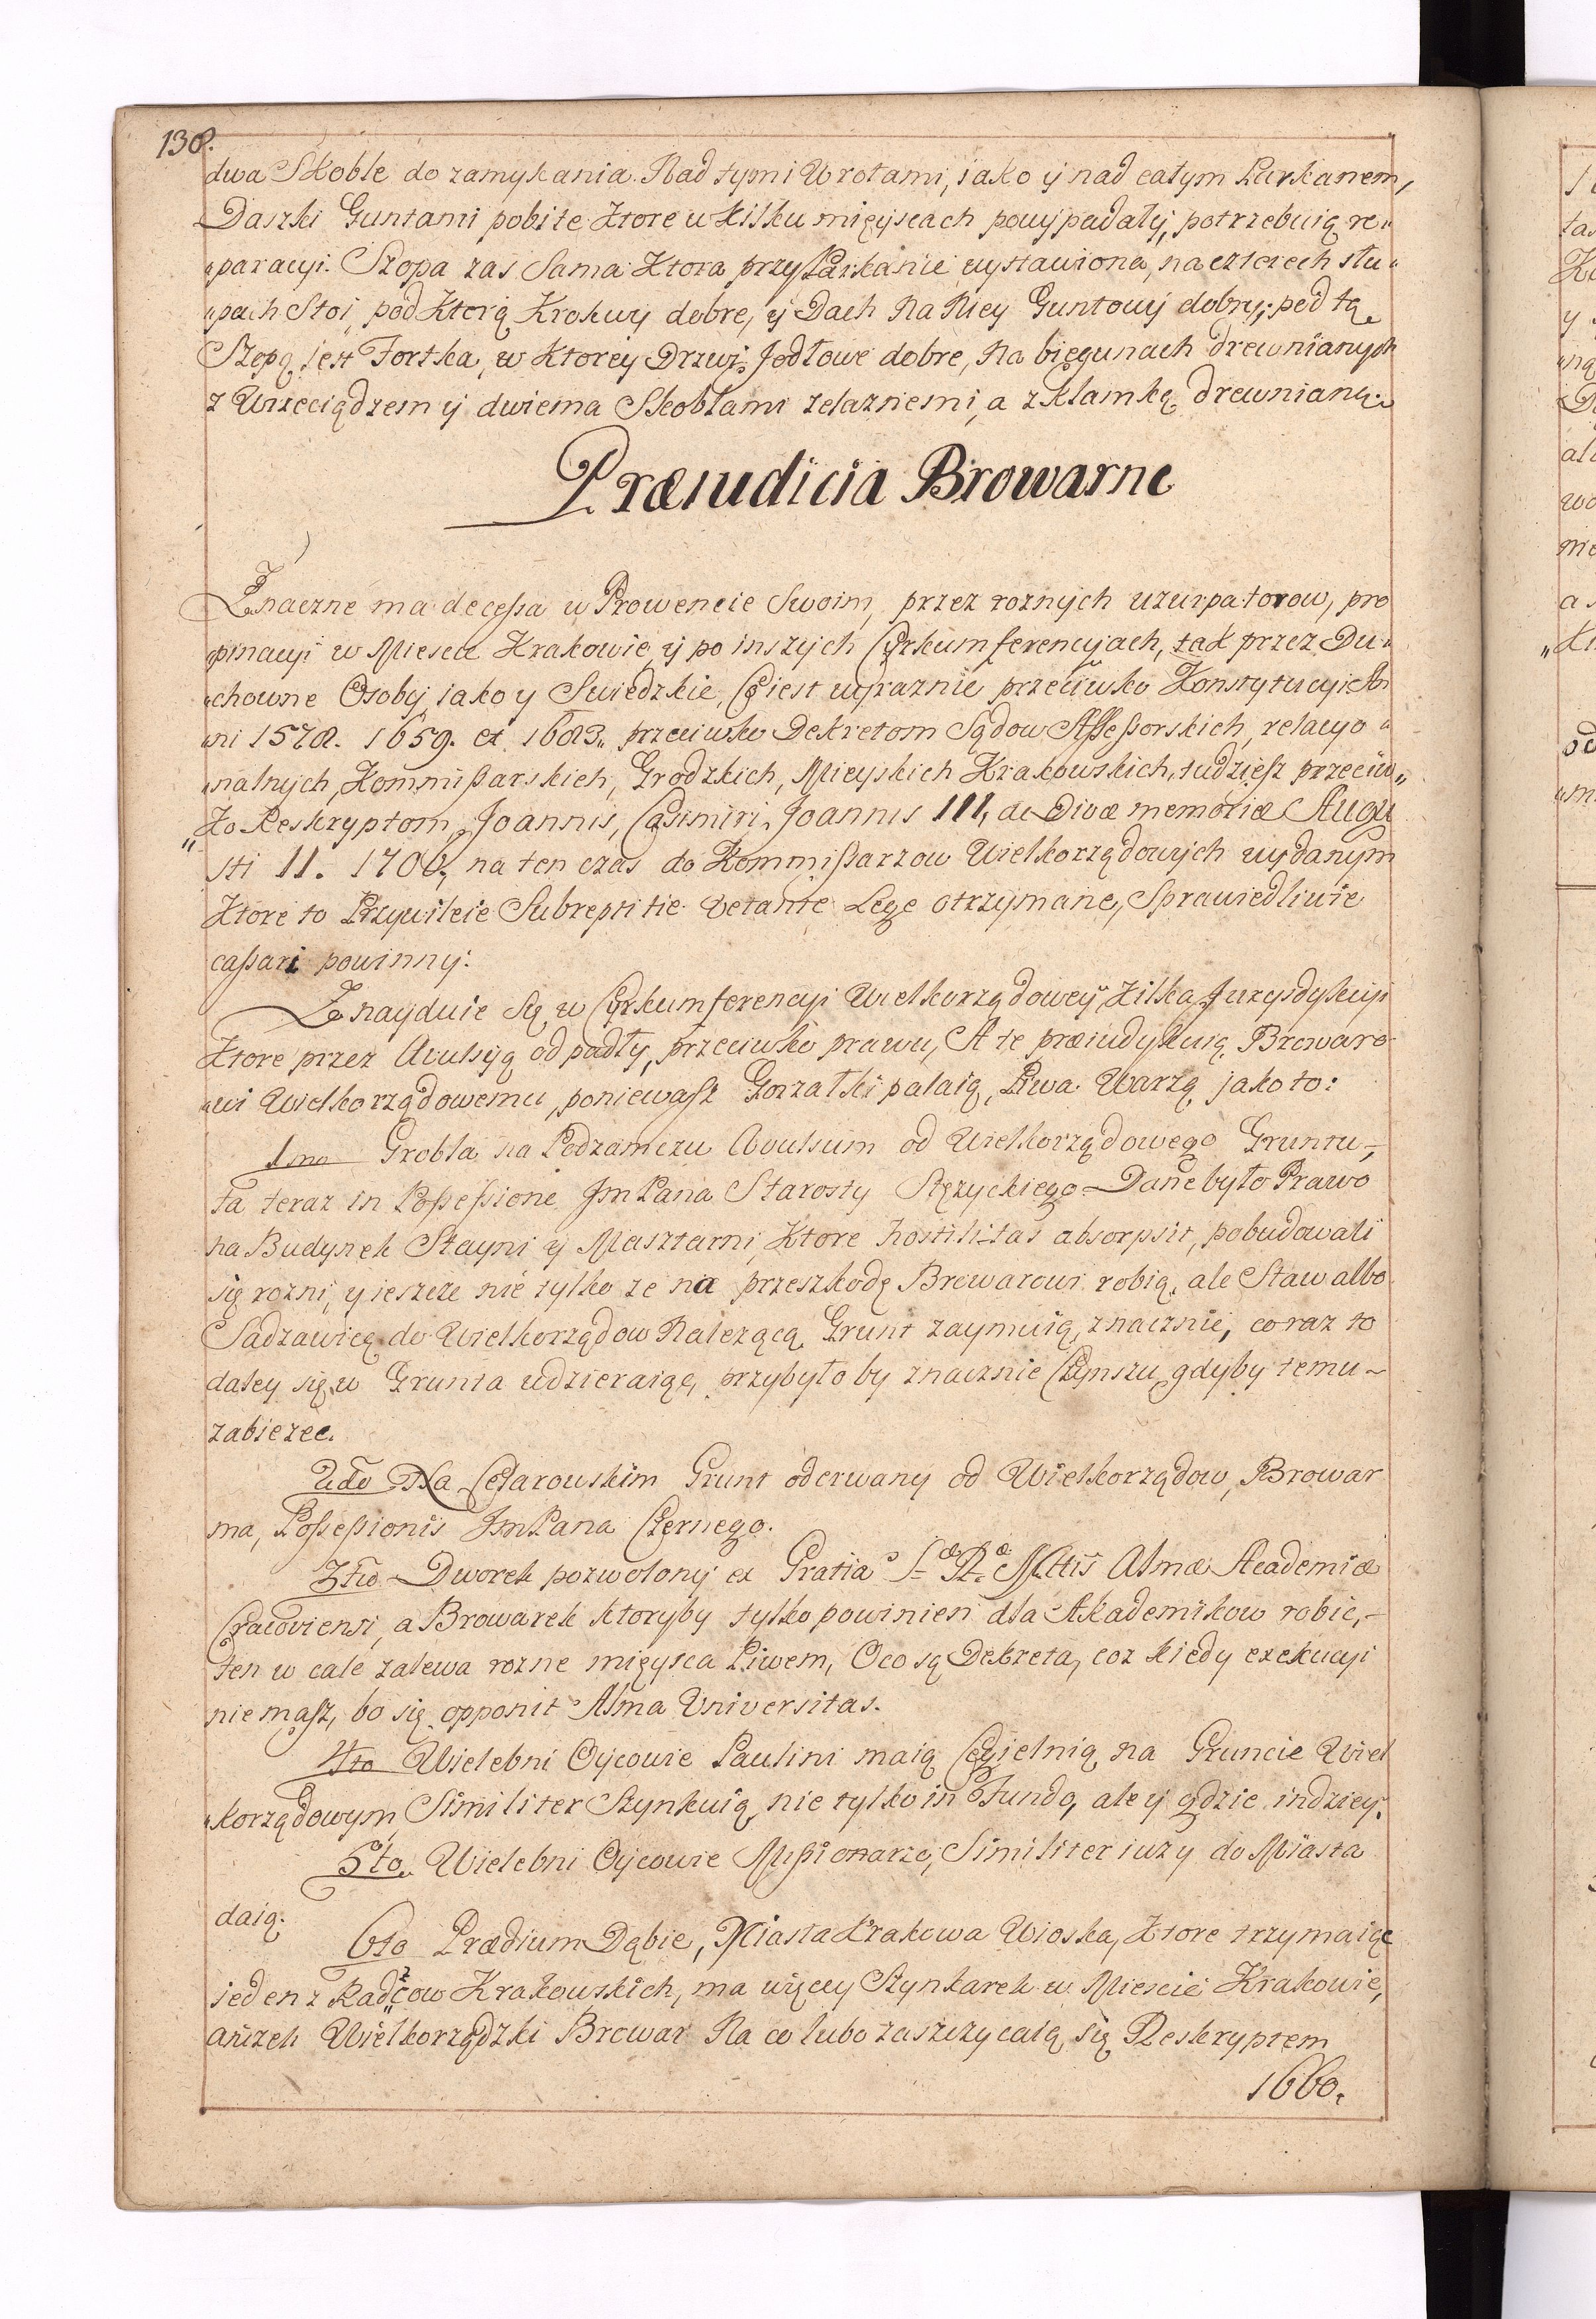 138.
dwa Skoble do zamykania. Nad tymi Wrotami, iako y nad całym Parkanem,
Daszki Guntami pobite Ktore w kilku mięyscach powypadały, potrzebuią re„
„paracyi. Szopa zas sama Ktora przy Parkanie wystawiona, na czterech słu„
„pach Stoi, pod Ktorą Krokwy dobre, y Dach Na Niey Guntowy dobry; pod tą
Szopą jest Fortka, w Ktorey Drzwi Jodłowe dobre, Na biegunach drewnianych
z Wrzeciądzem y dwiema Skoblami zelaznemi, a z klamką drewnianą.
Præiudicia Browarne
Znaczne ma decessa w Prowencie Swoim, przez roznych uzurpatorow, pro
„pinacyi w Miescie Krakowie y po inszych Cyrkumferencyjach, tak przez Du„
„chowne Osoby, iako y Swiedzkie, Co iest wyraznie przeciwko Konstytucyi An
„ni 1578. 1659. et 1683. przeciwko Dekretom Sądow Assessorskich, relacyo„
„nalnych, Kommissarskich, Grodzkich, Mieyskich Krakowskich, tudziesz przeciw„
„Ko Reskryptom, Joannis, Casimiri, Joannis III, de Divæ memoriæ Augu
sti II. 1700, na ten czas do Kommissarzow Wielkorządowych wydanym
Ktore to Przywileie Subreptitie vetante Lege otrzymane, Sprawiedliwie
cassari powinny.
Znayduie się w Cyrkumferencyi Wielkorządowey, Kilka Jurysdykcyi
Ktore przez Avulsyą odpadły, przeciwko prawu, A te præiudykuią Browaro
„wi Wielkorządowemu, poniewasz Gorzałki palaią, Piwa Warzą, jako to:
1mo Grobla na Podzamczu Avulsum od Wielkorządowego Gruntu,
ta teraz in Possessione Jm Pana Starosty Stęzyckiego. Dane było Prawo
na Budynek Stayni y Masztarni, Ktore hostilitas absorpsit, pobudowali
się rozni, y ieszcze nie tylko ze na przeszkodę Browarowi robią, ale Staw albo
Sadzawicą do Wielkorządow Nalezącą Grunt zaymuią, znacznie, coraz to
daley się w Grunta udzieraiąc, przybyło by znacznie Czynszu gdyby temu
zabiezec.
2do Na Cesarowskim Grunt oderwany od Wielkorządow, Browar
ma, Possessionis Jm Pana Czernego.
3tio Dworek pozwolony ex Gratia Sæ Ræ Mttis Almæ Academiæ
Cracoviensi, a Browarek ktoryby tylko powinien dla Akademikow robic,
ten w cale zalewa rozne mięysca Piwem, O co są Dekreta, coz kiedy exekucyi
nie masz, bo się opponit Alma Universitas.
4to Wielebni Oycowie Paulini maią Cegielnią na Gruncie Wiel
„korządowym Similiter Szynkuią nie tylko in Fundo, ale y gdzie indziey.
5to. Wielebni Oycowie Missionarze, Similiter iuz y do Miasta
daią.
6to Prædium Dąbie, Miasta Krakowa Wioska, Ktore trzymaiąc
ieden z Radzcow Krakowskich, ma więcy Szynkarek w Miescie Krakowie,
anizeli Wielkorządzki Browar Na co lubo zaszczycaią się Reskryptem
1660.